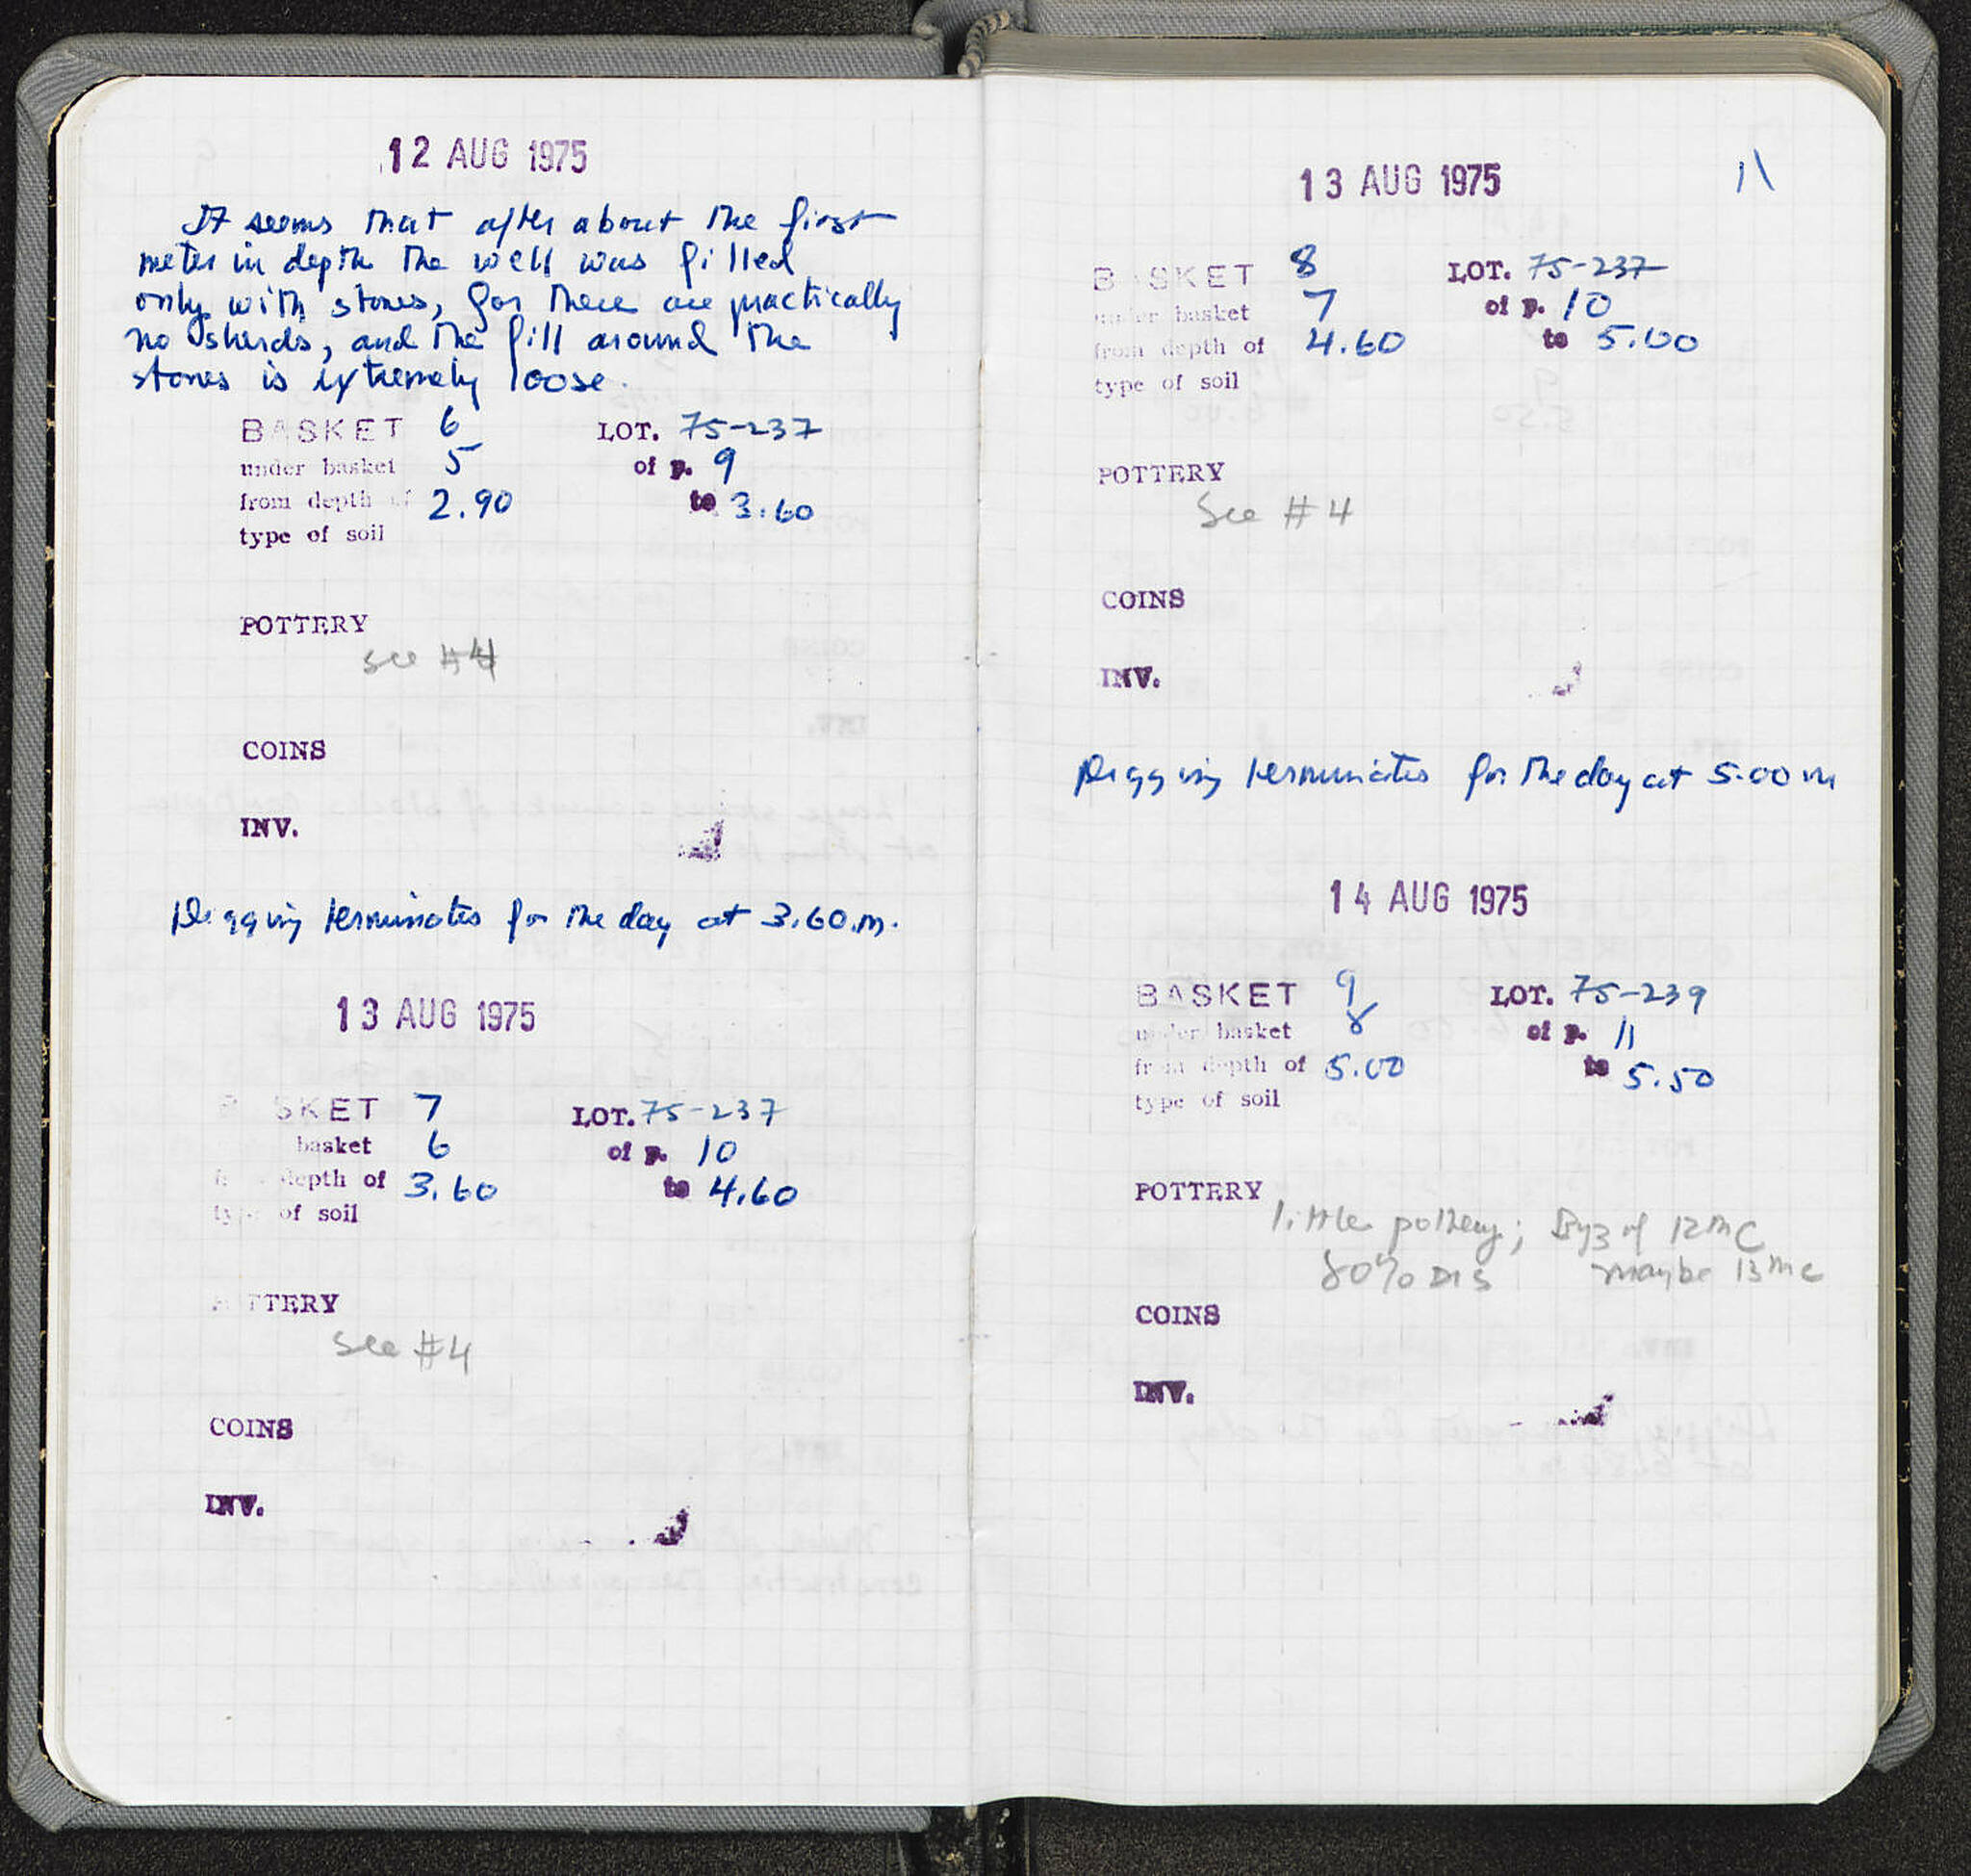 12 AUG 1975
It seems that after about the first
meter in depth the well was filled
only with stones, for there are practically
no sherds, and the fill around the
stones is extremely loose.
BASKET 6 LOT. 75-237
under basket 5 of p. 9
from depth of 2.90 to 3.60
type of soil
POTTERY
see #4
COINS
INV.
Digging terminates for the day at 3.60 m.
13 AUG 1975
BASKET 7 LOT. 75-237
basket 6 of p. 10
depth of 3.60 to 4.60
type of soil
POTTERY
see #4
COINS
INV.
11
13 AUG 1975
BASKET 8 LOT. 75-237
under basket 7 of p. 10
from depth of 4.60 to 5.00
type of soil
POTTERY
See #4
COINS
INV.
Digging terminates for the day at 5.00 m
14 AUG 1975
BASKET 9 LOT. 75-239
under basket 8 of p. 11
from depth of 5.00 to 5.50
type of soil
POTTERY
little pottery; Byz of 12th C
80% DIS maybe 13th c
COINS
INV.